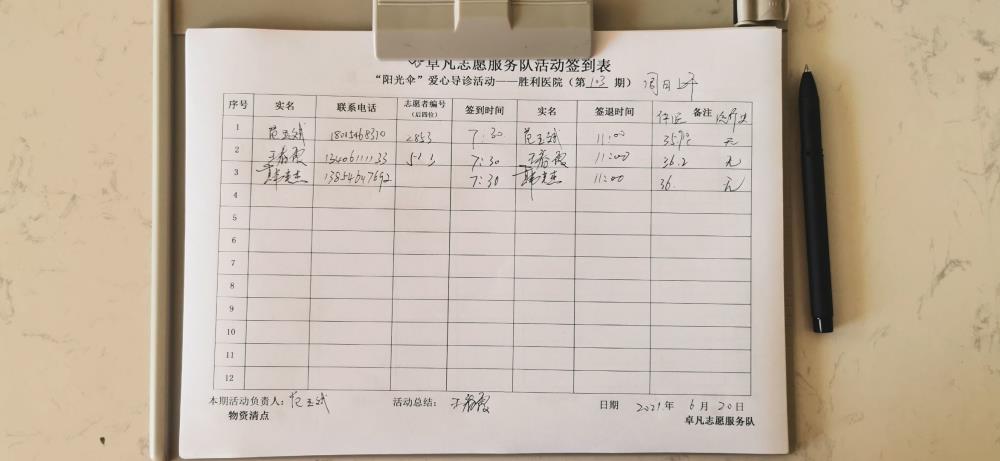 卓凡志愿服务队活动签到表
“阳光伞”爱心导诊活动——胜利医院（第103期） 周日上午
序号 实名 联系电话 志愿者编号（后四位） 签到时间 实名 签退时间 体温 备注
1 范玉斌 2853 7:30 范玉斌 11:00 无
2 王 霞 13406111133 7:30 王 霞 11:00 36.2 无
3 13854647692 7:30 11:00 36. 无
4
5
6
7
8
9
10
11
12
本期活动负责人：范玉斌 活动总结：王 霞 日期 2021年6月20日
物资清点 卓凡志愿服务队